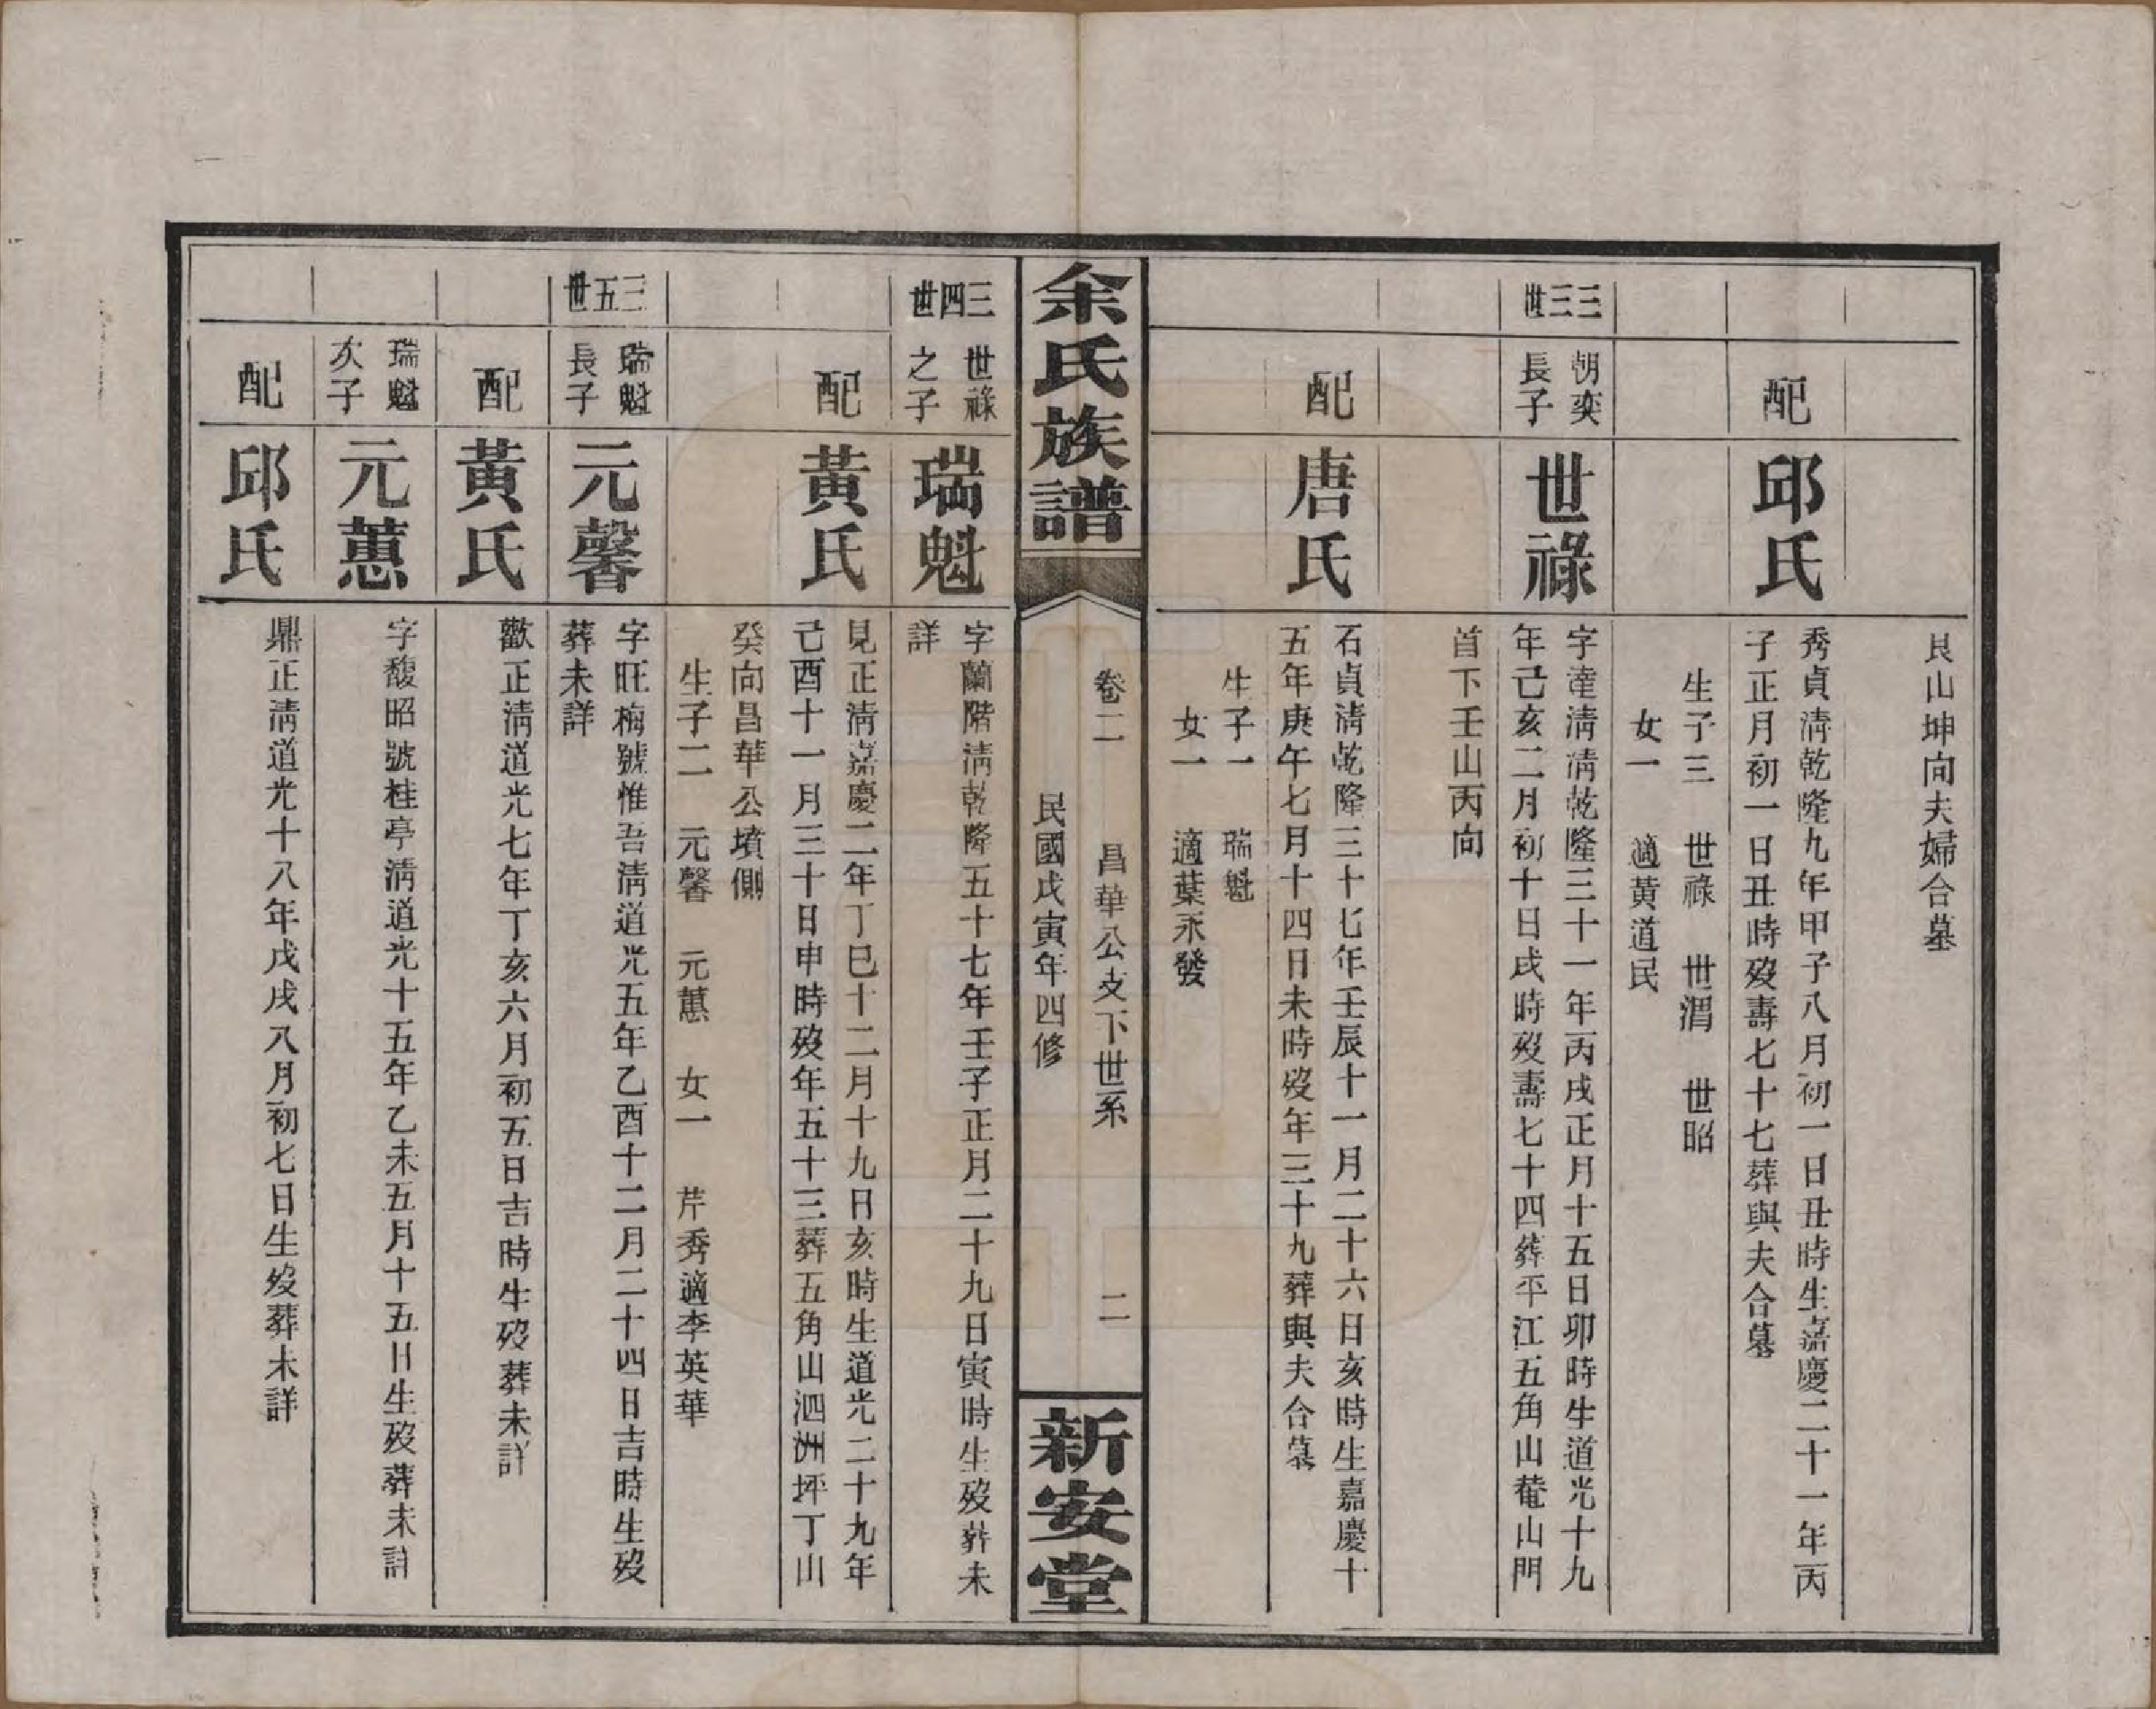 艮山坤向夫婦合墓
配
邱氏
秀貞淸乾隆九年甲子八月初一日丑時生嘉慶二十一年丙
子正月初一日丑時歿壽七十七葬與夫合墓
生子三　世祿　世渭　世昭
女一　適黃道民
三三世
朝奕
長子
世祿
字達淸淸乾隆三十一年丙戌正月十五日卯時生道光十九
年己亥二月初十日戌時歿壽七十四葬平江五角山菴山門
首下壬山丙向
配
唐氏
石貞淸乾隆三十七年壬辰十一月二十六日亥時生嘉慶十
五年庚午七月十四日未時歿年三十九葬與夫合墓
生子一　瑞魁
女一　適葉永發
余氏族譜
卷二　昌華公支下世系　二
民國戊寅年四修
新安堂
三四世
世祿
之子
瑞魁
字蘭階淸乾隆五十七年壬子正月二十九日寅時生歿葬未
詳
配
黃氏
見正淸嘉慶二年丁巳十二月十九日亥時生道光二十九年
己酉十一月三十日申時歿年五十三葬五角山泗洲坪丁山
癸向昌華公墳側
生子二　元馨　元蕙　女一　芹秀適李英華
三五世
瑞魁
長子
元馨
字旺梅號惟吾淸道光五年乙酉十二月二十四日吉時生歿
葬未詳
配
黃氏
歡正淸道光七年丁亥六月初五日吉時生歿葬未詳
瑞魁
次子
元蕙
字馥昭號桂亭淸道光十五年乙未五月十五日生歿葬未詳
配
邱氏
鼎正淸道光十八年戊戌八月初七日生歿葬未詳